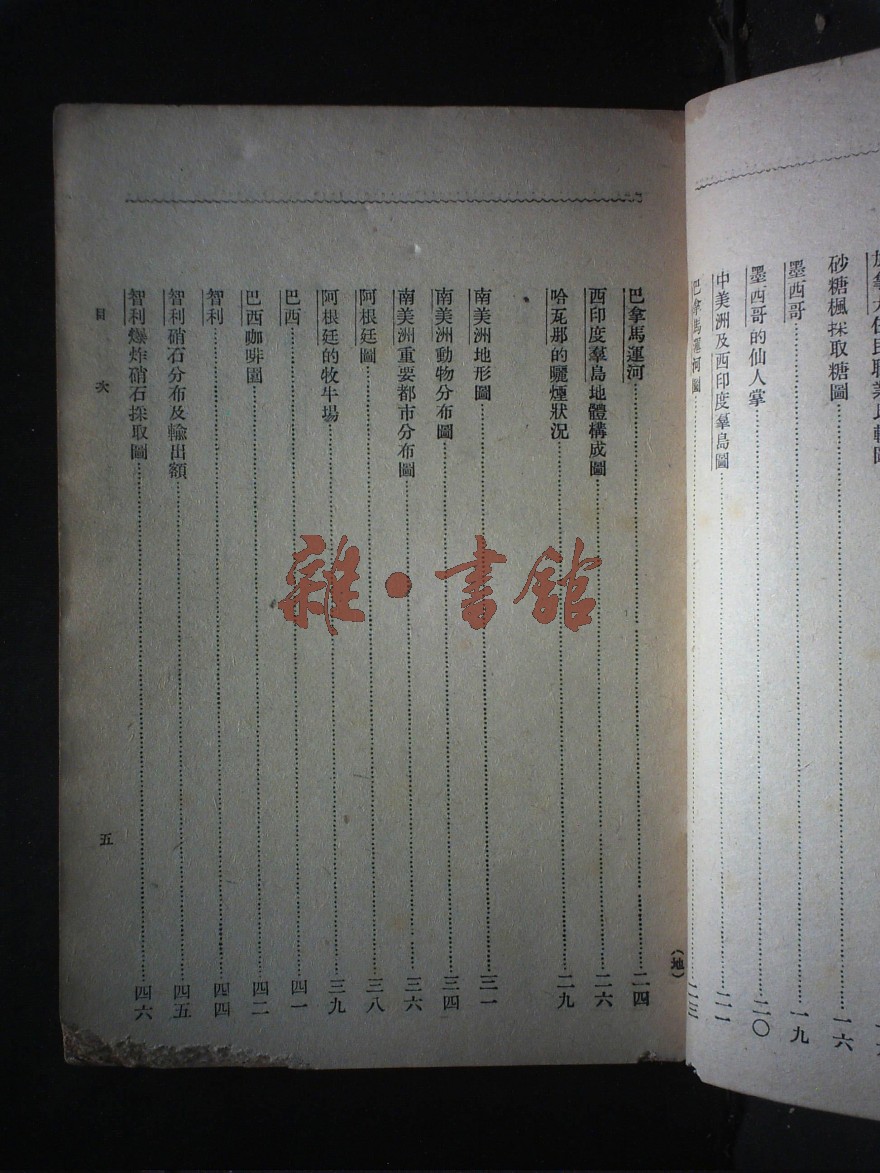 砂糖楓採取糖圖……一六
墨西哥……一九
墨西哥的仙人掌……二〇
中美洲及西印度羣島圖……二一
巴拿馬運河圖……二三
(地)
巴拿馬運河……二四
西印度羣島地體構成圖……二六
哈瓦那的曬煙狀況……二九
南美洲地形圖……三一
南美洲動物分布圖……三四
南美洲重要都市分布圖……三六
阿根廷圖……三八
阿根廷的牧牛場……三九
巴西……四一
巴西咖啡園……四二
智利……四四
智利硝石分布及輸出額……四五
智利爆炸硝石採取圖……四六
目次
五
雜·書館